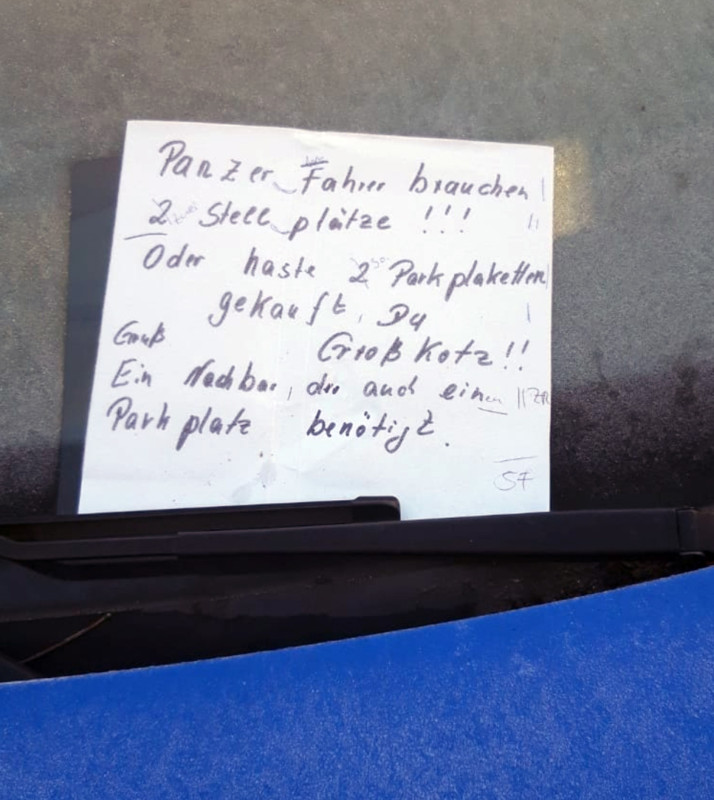 Panzer Fahrer brauchen
2 Stell plätze !!!
Oder haste 2 Park plaketten
gekauft, Du
Gruß Groß Kotz!!
Ein Nachbar, der auch einen
Park platz benötigt.